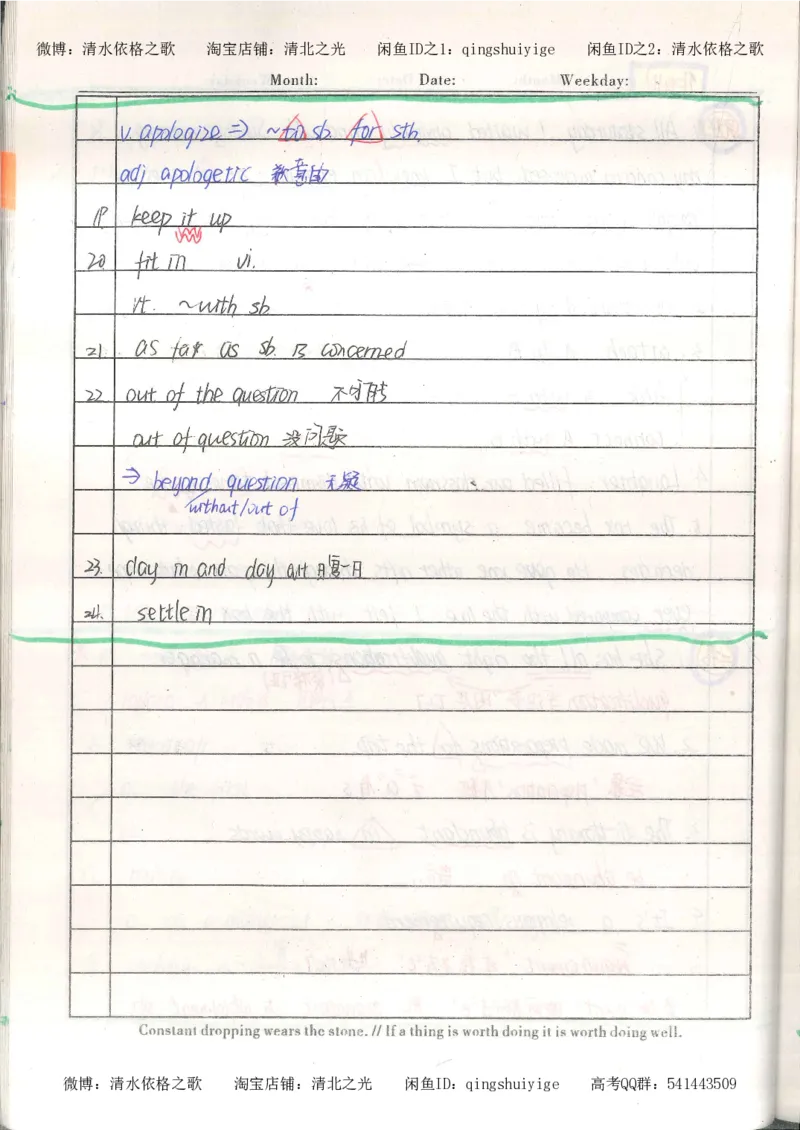 微博：清水依格之歌 淘宝店铺：清北之光 闲鱼ID之1：qingshuiyige 闲鱼ID之2：清水依格之歌
Month: Date: Weekday:
v. apologize => ~ to sb. for sth.
adj apologetic 歉意的
19 keep it up
20 fit in vi.
vt. ~with sb
21 as far as sb. is concerned
22 out of the question 不可能
out of question 没问题
=> beyond question 无疑
without/out of
23. day in and day out 日复一日
24. settle in
Constant dropping wears the stone. // If a thing is worth doing it is worth doing well.
微博：清水依格之歌 淘宝店铺：清北之光 闲鱼ID：qingshuiyige 高考QQ群：541443509